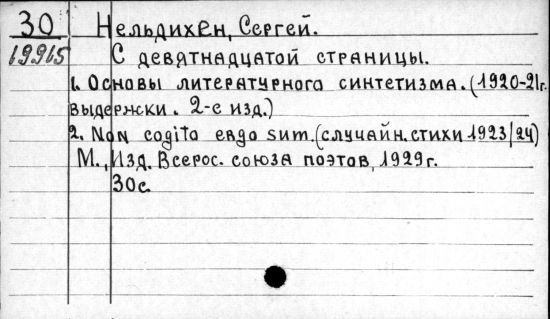 30 Нельдихен, Сергей.
19915 С девятнадцатой страницы.
1. Основы литературного синтетизма. (1920-21г.
выдержки. 2-е изд.)
2. Non cogito ergo sum. (случайн. стихи 1923/24)
М., Изд. Всерос. союза поэтов, 1929 г.
30с.